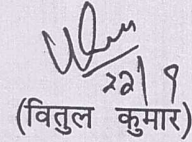 22/9
(वितुल कुमार)